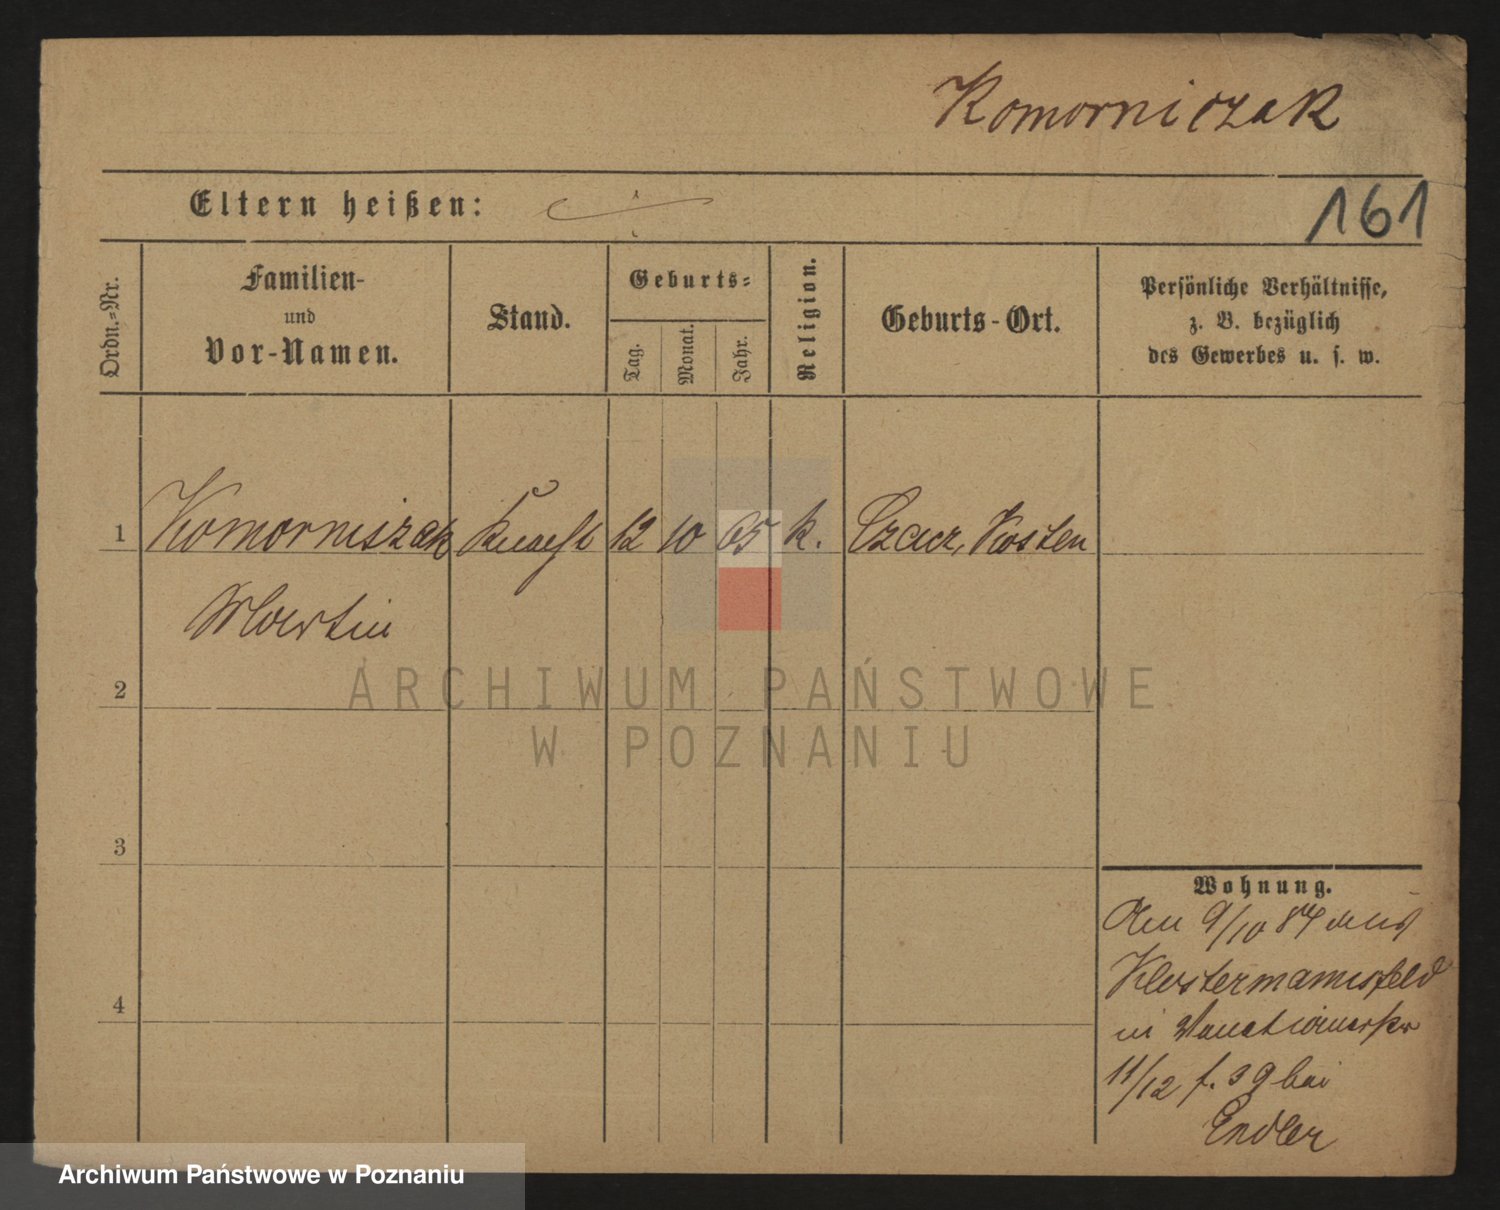 Komorniczak
Eltern heißen:
161
Ordn.-Nr.
Familien-
und
Vor-Namen.
Stand.
Geburts-
Tag.
Monat.
Jahr.
Religion.
Geburts-Ort.
Persönliche Verhältnisse,
z. B. bezüglich
des Gewerbes u. s. w.
1 Komorniczak Knecht 12 10 65 k. Czacz, Kosten
Martin
2
ARCHIWUM PAŃSTWOWE
W POZNANIU
3
Wohnung.
Am 9/10 84 aus
Klostermannsfeld
in
4
11/12 f. 39 bei
Endler
Archiwum Państwowe w Poznaniu